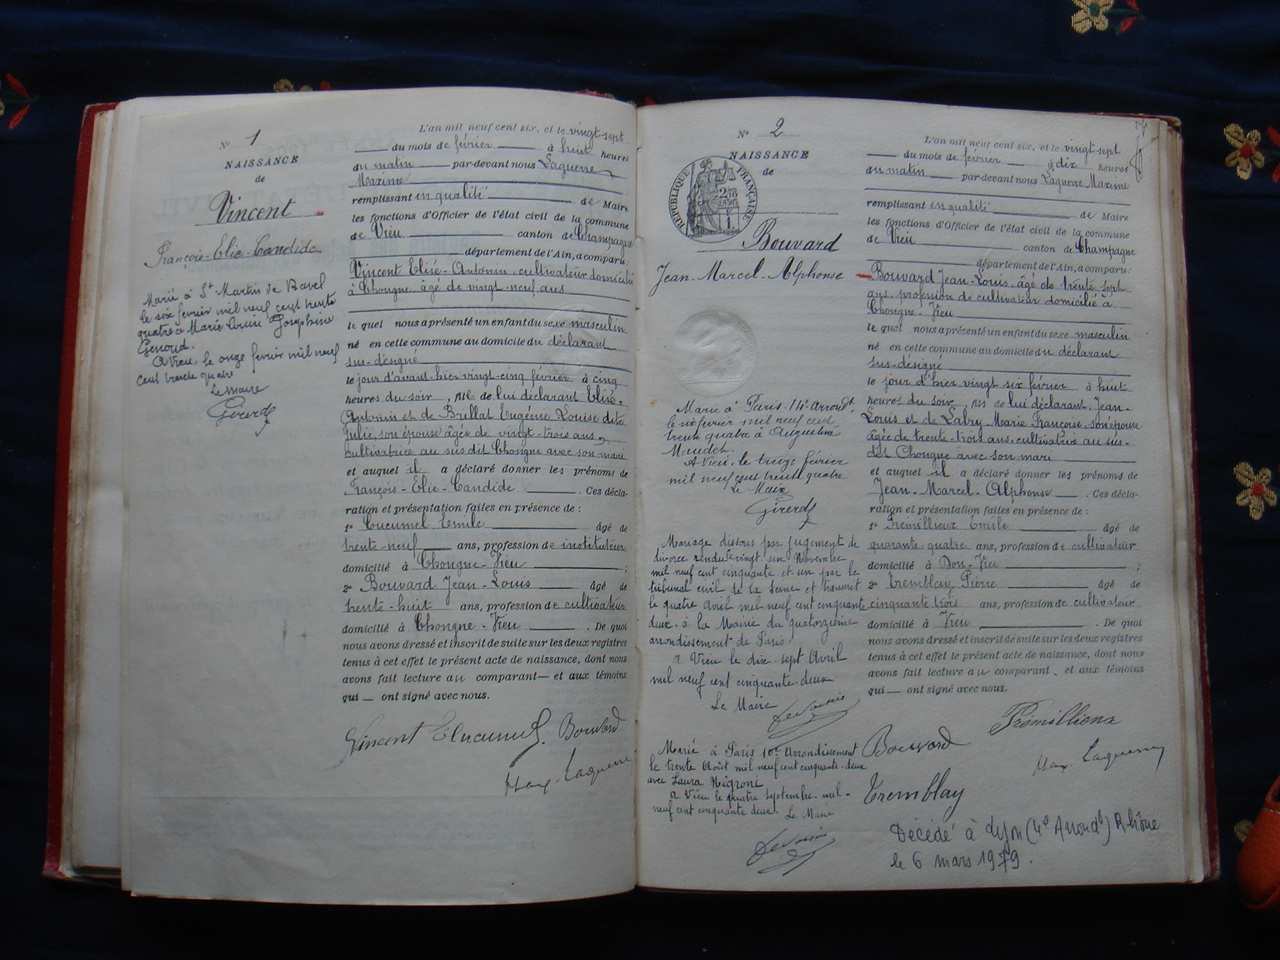 N° 1
NAISSANCE
de
Vincent
François-Elie-Candide
Marié à St Martin de Bavel
le six février mil neuf cent trente
quatre à Marie Louise Joséphine
Genoud.
A Vieu, le onze février mil neuf
cent trente quatre
Le Maire
L'an mil neuf cent six, et le vingt-sept
du mois de février à huit heures
du matin par-devant nous Laguerre
Maxime
remplissant en qualité de Maire
les fonctions d'Officier de l'état civil de la commune
de Vieu canton de Champagne
département de l'Ain, a comparu:
Vincent Elie-Antonin, cultivateur domicilié
à Chongne, âgé de vingt-neuf ans
le quel nous a présenté un enfant du sexe masculin
né en cette commune au domicile du déclarant
sus-désigné
le jour d'avant-hier vingt-cinq février à cinq
heures du soir, fils de lui déclarant Elie-
Antonin et de Brillat Eugénie Louise dite
Julie, son épouse âgée de vingt-trois ans,
cultivatrice au sus dit Chongne avec son mari
et auquel il a déclaré donner les prénoms de
François-Elie-Candide. Ces décla-
ration et présentation faites en présence de :
1° Cucumel Emile âgé de
trente-neuf ans, profession de instituteur
domicilié à Chongne-Vieu ;
2° Bouvard Jean-Louis âgé de
trente-huit ans, profession de cultivateur
domicilié à Chongne-Vieu. De quoi
nous avons dressé et inscrit de suite sur les deux registres
tenus à cet effet le présent acte de naissance, dont nous
avons fait lecture au comparant et aux témoins
qui ont signé avec nous.
Vincent E Cucumel. Bouvard
Max Laguerre
N° 2
NAISSANCE
de
RÉPUBLIQUE FRANÇAISE
Bouvard
Jean-Marcel-Alphonse
Marié à Paris 14e Arrondt.
le février mil neuf cent
trente quatre à Augustine
A Vieu, le treize février
mil neuf cent trente quatre
Le Maire
Mariage dissous par jugement de
divorce rendu le vingt un Novembre
mil neuf cent cinquante et un par le
tribunal civil de la Seine et transcrit
le quatre Avril mil neuf cent cinquante
deux à la Mairie du quatorzième
arrondissement de Paris
A Vieu le dix-sept Avril
mil neuf cent cinquante-deux
Le Maire
Marié à Paris 10e Arrondissement
le trente Août mil neuf cent cinquante-deux
avec Laura Négroni
A Vieu le quatre septembre mil-
neuf cent cinquante deux Le Maire
L'an mil neuf cent six, et le vingt-sept
du mois de février à dix heures
du matin par-devant nous Laguerre Maxime
remplissant en qualité de Maire
les fonctions d'Officier de l'état civil de la commune
de Vieu canton de Champagne
département de l'Ain, a comparu:
Bouvard Jean-Louis, âgé de trente sept
ans, profession de cultivateur domicilié à
Chongne-Vieu
le quel nous a présenté un enfant du sexe masculin
né en cette commune au domicile du déclarant
sus-désigné
le jour d'hier vingt six février à huit
heures du soir, fils de lui déclarant Jean-
Louis et de Labry Marie Françoise son épouse
âgée de trente-trois ans, cultivatrice au sus-
dit Chongne avec son mari
et auquel il a déclaré donner les prénoms de
Jean-Marcel-Alphonse. Ces décla-
ration et présentation faites en présence de :
1° Prémillieux Emile âgé de
quarante quatre ans, profession de cultivateur
domicilié à Don-Vieu ;
2° Tremblay Pierre âgé de
cinquante trois ans, profession de cultivateur
domicilié à Vieu. De quoi
nous avons dressé et inscrit de suite sur les deux registres
tenus à cet effet le présent acte de naissance, dont nous
avons fait lecture au comparant et aux témoins
qui ont signé avec nous.
Prémillieux
Bouvard
Max Laguerre
Tremblay
Décédé à Lyon (4e Arrondt) Rhône
le 6 mars 1979.